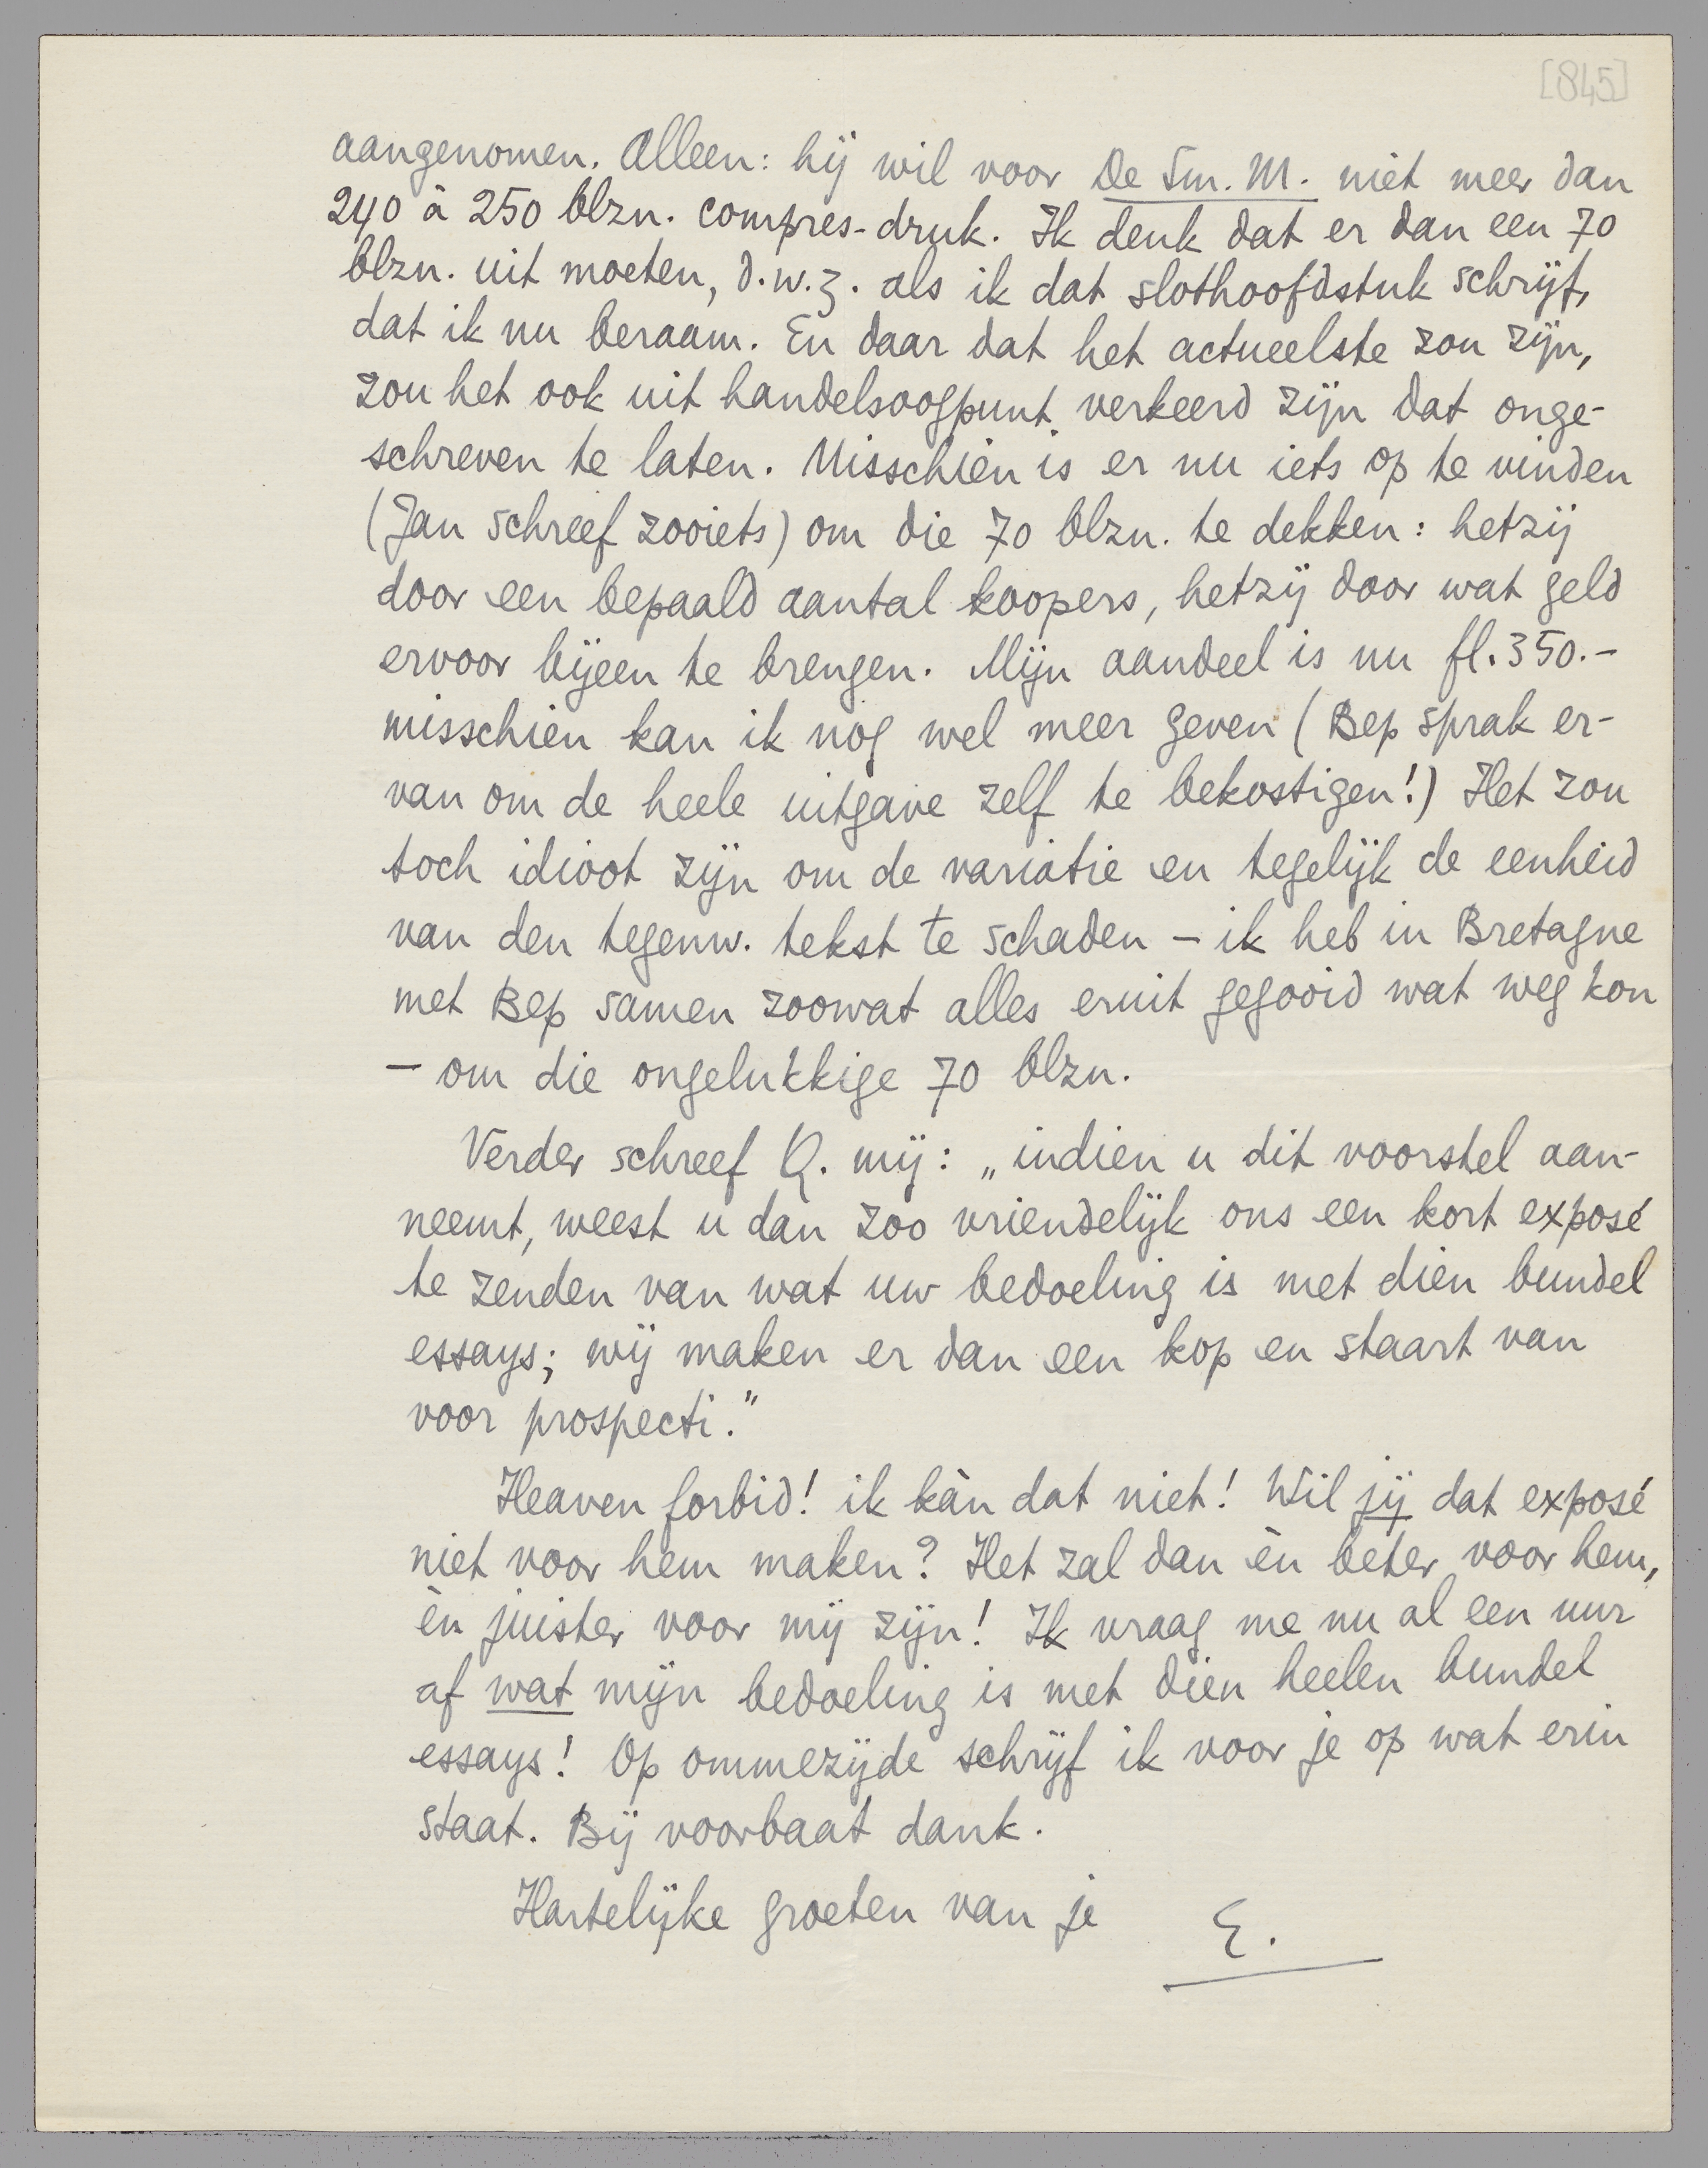 [845]
aangenomen. Alleen: hij wil voor De Sm. M. niet meer dan
240 à 250 blzn. compres-druk. Ik denk dat er dan een 70
blzn. uit moeten, d.w.z. als ik dat slothoofdstuk schrijf,
dat ik nu beraam. En daar dat het actueelste zou zijn,
zou het ook uit handelsoogpunt verkeerd zijn dat onge-
schreven te laten. Misschien is er nu iets op te vinden
(Jan schreef zooiets) om die 70 blzn. te dekken: hetzij
door een bepaald aantal koopers, hetzij door wat geld
ervoor bijeen te brengen. Mijn aandeel is nu fl. 350.-
misschien kan ik nog wel meer geven (Bep sprak er-
van om de heele uitgave zelf te bekostigen!) Het zou
toch idioot zijn om de variatie en tegelijk de eenheid
van den tegenw. tekst te schaden - ik heb in Bretagne
met Bep samen zoowat alles eruit gegooid wat weg kon
- om die ongelukkige 70 blzn.
Verder schreef Q. mij: „indien u dit voorstel aan-
neemt, weest u dan zoo vriendelijk ons een kort exposé
te zenden van wat uw bedoeling is met dien bundel
essays; wij maken er dan een kop en staart van
voor prospecti."
Heaven forbid! ik kàn dat niet! Wil jij dat exposé
niet voor hem maken? Het zal dan èn beter voor hem,
èn juister voor mij zijn! Ik vraag me nu al een uur
af wat mijn bedoeling is met dien heelen bundel
essays! Op ommezijde schrijf ik voor je op wat erin
staat. Bij voorbaat dank.
Hartelijke groeten van je E.